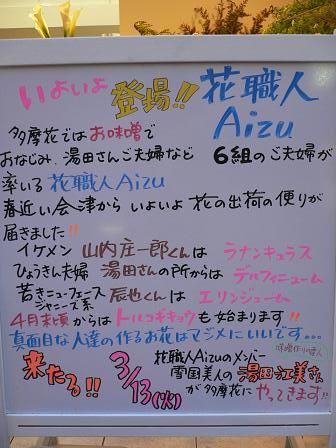 いよいよ 登場!! 花職人
Aizu
多摩花ではお味噌で
おなじみ、湯田さんご夫婦など 6組のご夫婦が
率いる 花職人Aizu
春近い会津から いよいよ 花の出荷の便りが
届きました!!
イケメン 山内庄一郎くんは ラナンキュラス
ひょうきん夫婦 湯田さんの所からは デルフィニューム
若きニューフェース
ジャニーズ系 辰也くんは エリンジューム
4月末頃からは トルコギキョウも始まります!!
真面目な人達の作るお花はマジメにいいです...
味噌作りの達人
来たる!! 3/13(火) 花職人Aizuのメンバー
雪国美人の 湯田江美さん
が多摩花に やってきます!!